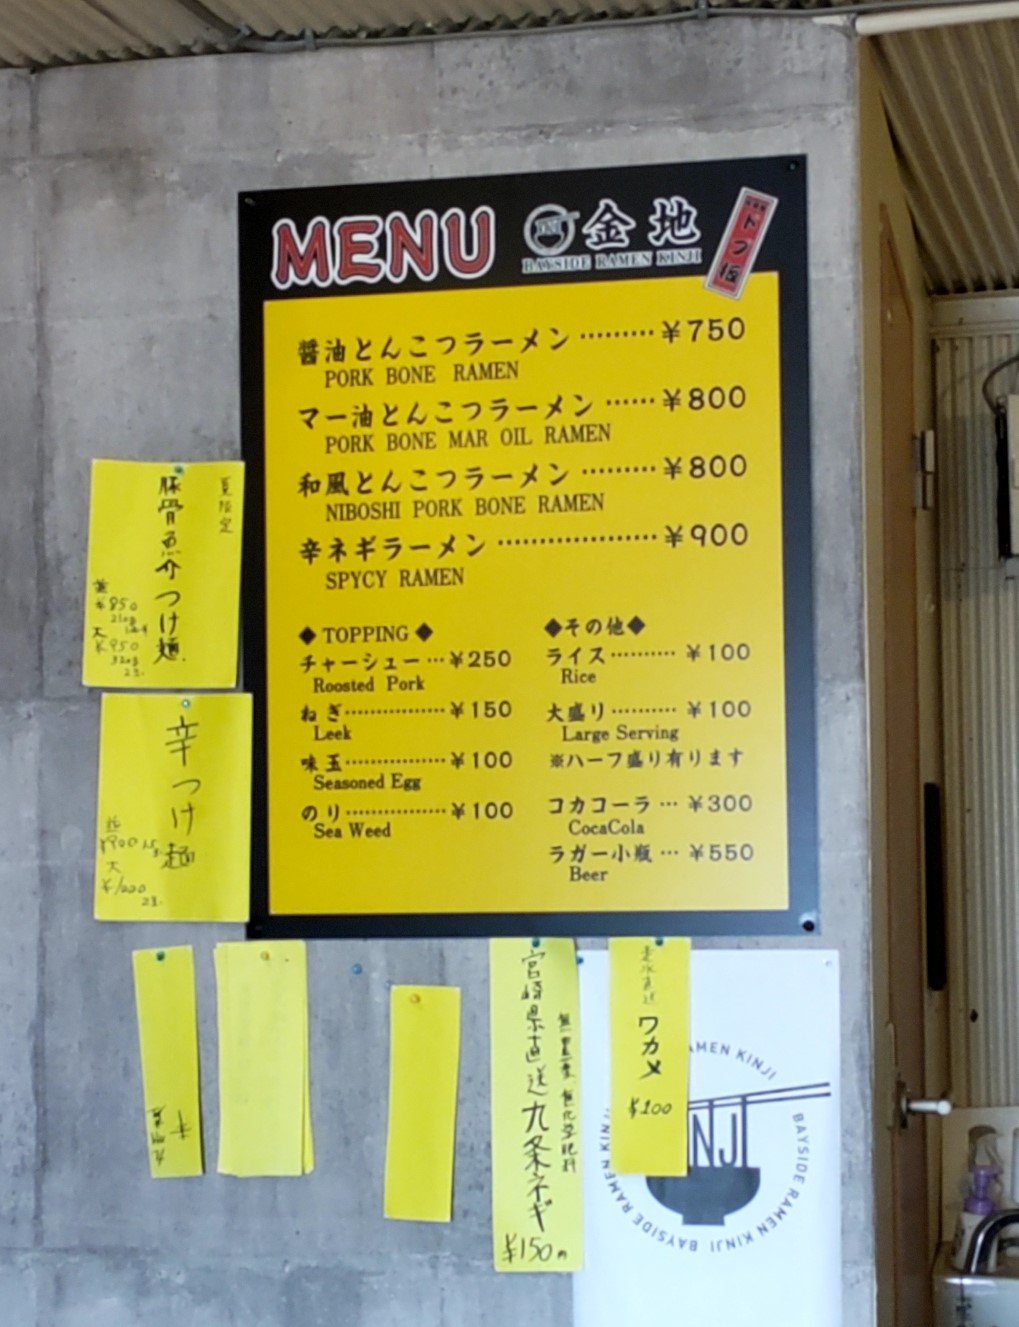 MENU
金地
BAYSIDE RAMEN KINJI
ドブ板
醤油とんこつラーメン………¥750
PORK BONE RAMEN
マー油とんこつラーメン……¥800
PORK BONE MAR OIL RAMEN
和風とんこつラーメン………¥800
NIBOSHI PORK BONE RAMEN
辛ネギラーメン………………¥900
SPYCY RAMEN
◆ TOPPING ◆
チャーシュー…¥250
Roosted Pork
ねぎ……………¥150
Leek
味玉……………¥100
Seasoned Egg
のり……………¥100
Sea Weed
◆その他◆
ライス………¥100
Rice
大盛り………¥100
Large Serving
※ハーフ盛り有ります
コカコーラ…¥300
CocaCola
ラガー小瓶…¥550
Beer
夏限定
豚骨魚介つけ麺
並
¥850
210g
1.5玉
大
¥950
320g
2玉
辛つけ麺
並
¥900 1.5玉
大
¥1000
2玉
宮崎県直送九条ネギ
¥150円
走水直送
ワカメ
¥100
RAMEN KINJI
BAYSIDE RAMEN KINJI
BAYSIDE RAMEN KINJI